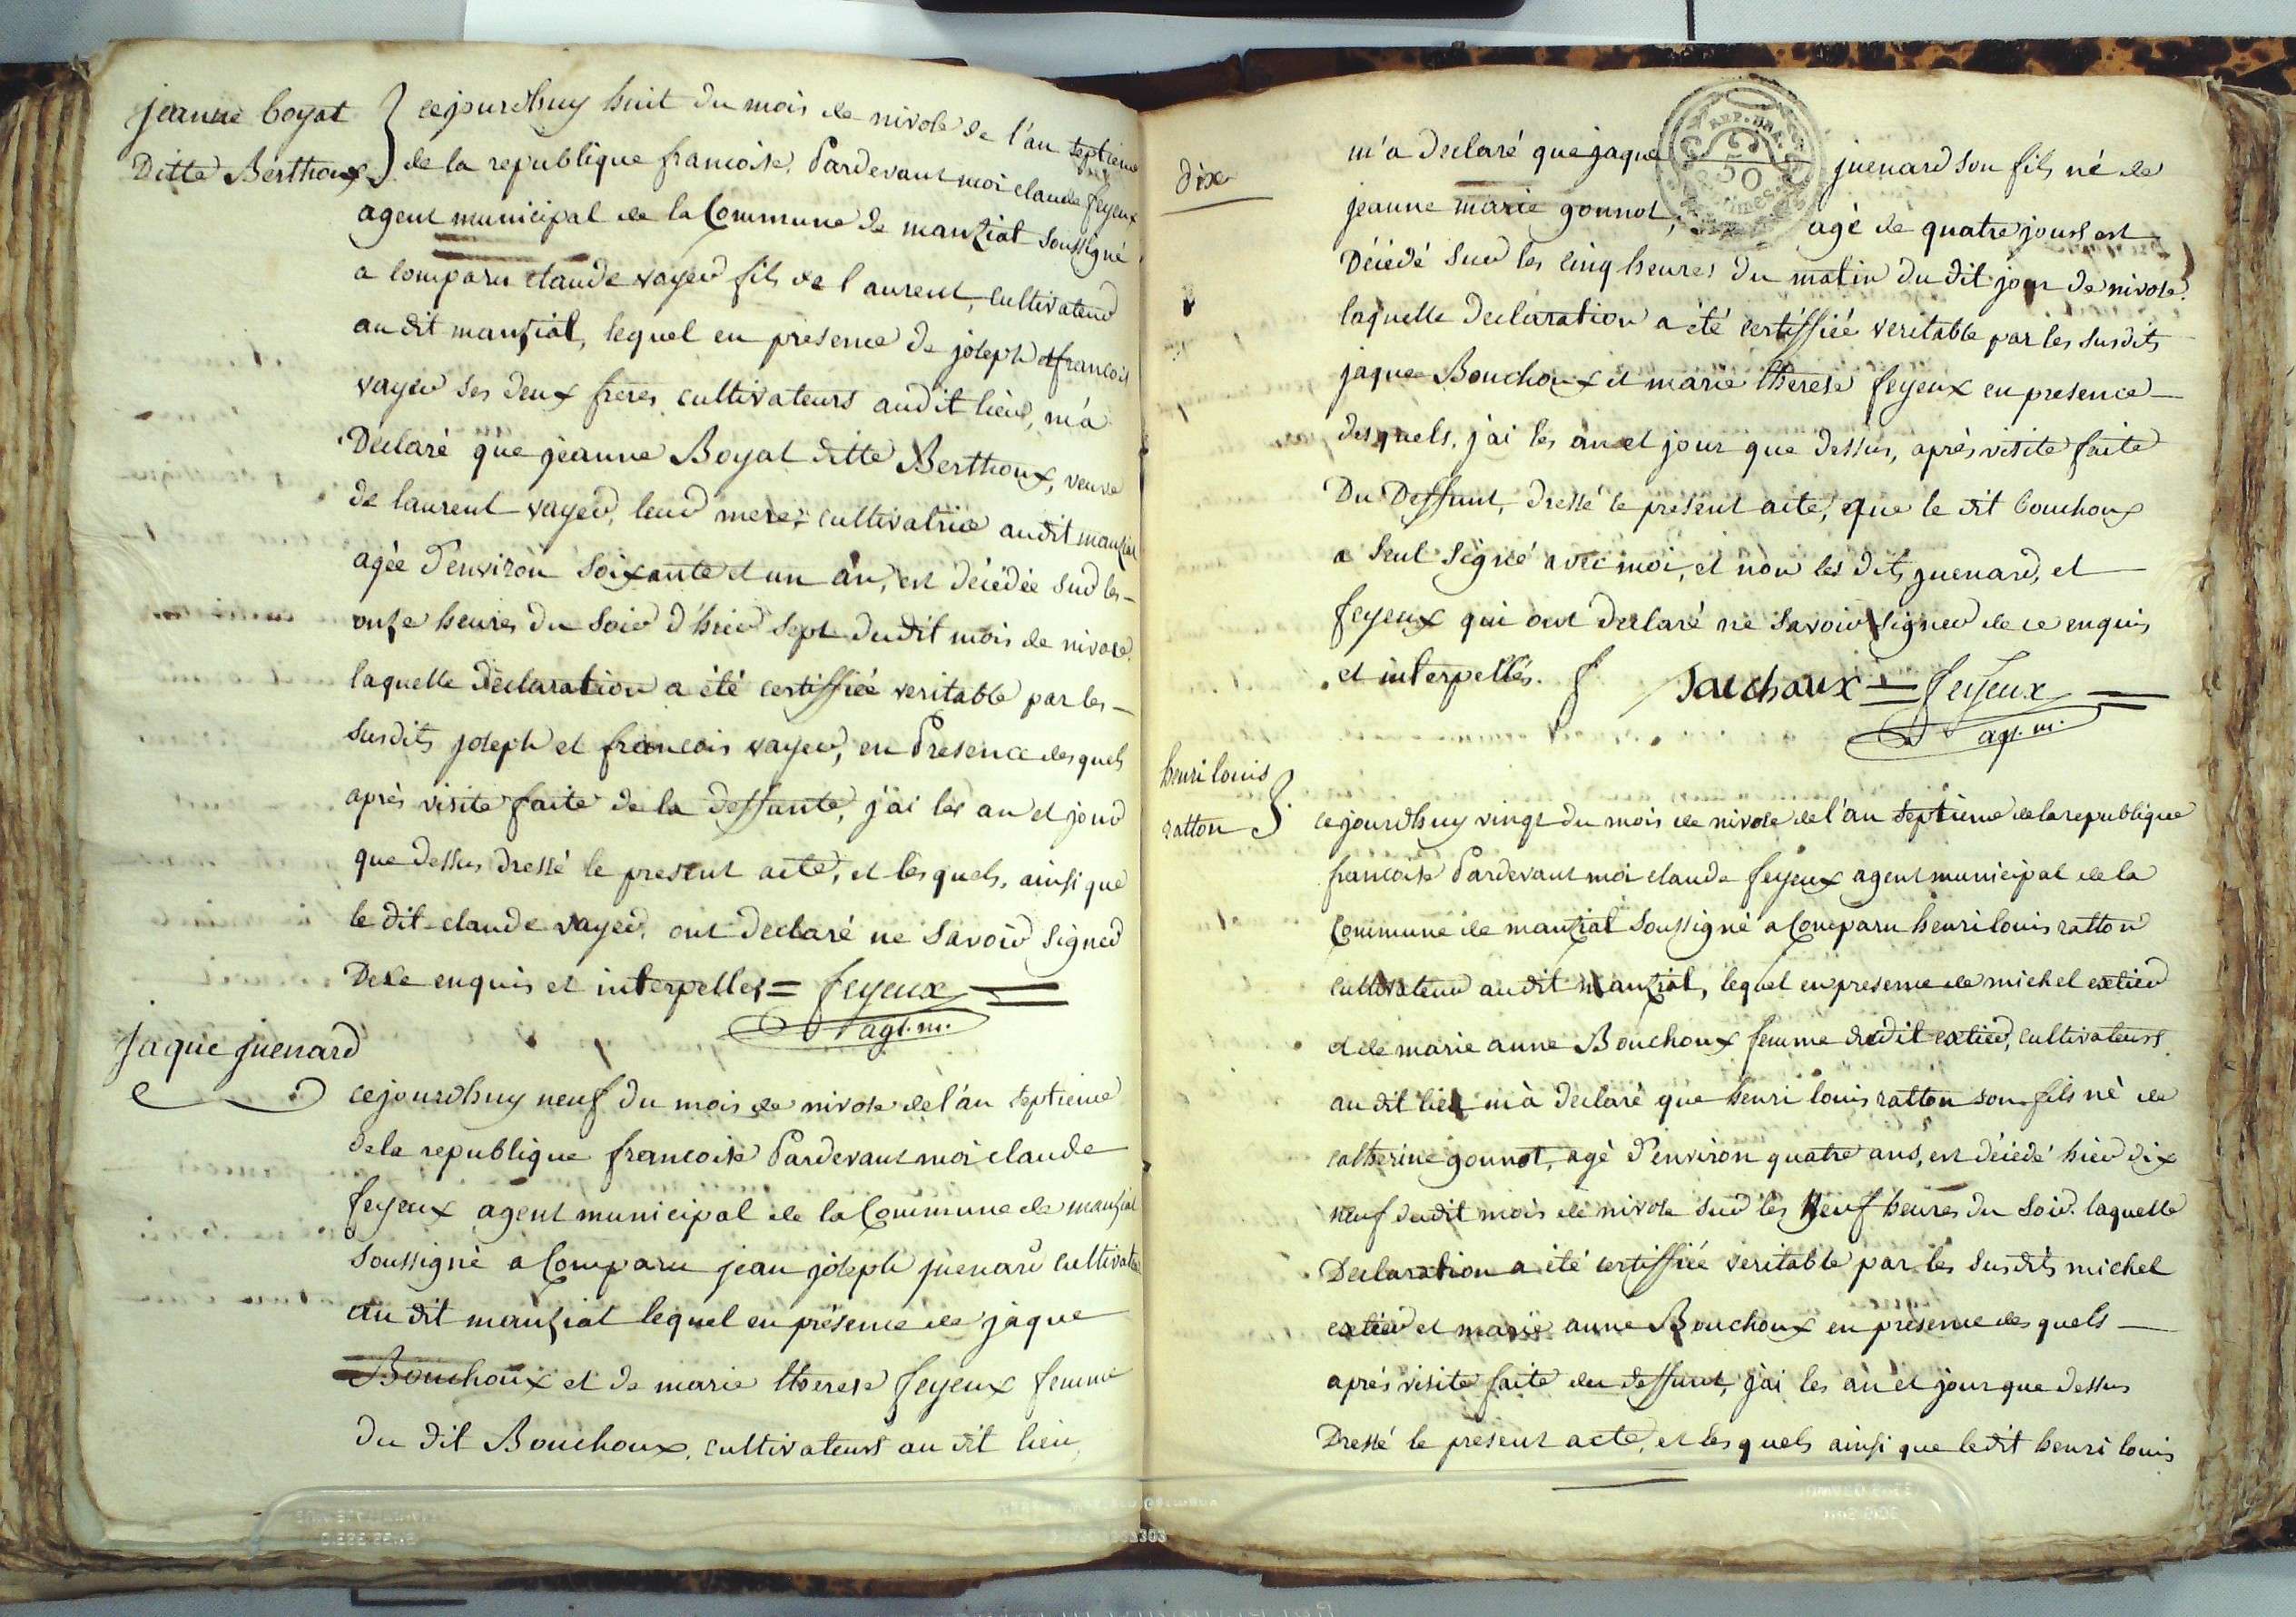 jeanne boyat
Ditte Berthoux
cejourdhuy huit du mois de nivose de l'an septieme
de la republique francoise, Pardevant moi claude feyeux
agent municipal de la Commune de manziat soussigné
a comparu claude vayer fils de laurent, cultivateur
audit manziat, lequel en presence de joseph et francois
vayer ses deux freres cultivateurs audit lieu, m'a
Declaré que jeanne Boyat ditte Berthoux, veuve
de laurent vayer, leur mere, cultivatrice audit manziat
agée d'environ soixante et un an, est décédée sur les
onze heures du soir d'hier sept dudit mois de nivose.
laquelle déclaration a été certiffiée veritable par les
susdits joseph et francois vayer, en Presence desquels
après visite faite de la deffunte, j'ai les an et jour
que dessus dressé le present acte, et lesquels, ainsi que
le dit claude vayer, ont declaré ne savoir signer
De ce enquis et interpellés = feyeux
agt. m.
Jaque juenard
cejourdhuy neuf du mois de nivose de l'an septieme
de la republique francoise Pardevant moi claude
feyeux agent municipal de la Commune de manziat
soussigné a Comparu jean joseph juenard cultivateur
au dit manziat lequel en présence de jaque
Bouchoux et de marie therese feyeux femme
du dit Bouchoux, cultivateurs au dit lieu,
dix
REP. FRA.
50
m'a declaré que jaque juenard son fils né de
jeanne marie gonnot, agé de quatre jours est
Décédé sur les cinq heures du matin du dit jour de nivose.
laquelle declaration a été certiffiée veritable par les susdits
jaque Bouchoux et marie therese feyeux en presence
desquels, j'ai les an et jour que dessus, après visite faite
Du Deffunt, dressé le present acte, que le dit bouchoux
a seul signé avec moi, et non les dits juenard, et
feyeux qui ont declaré ne savoir signer de ce enquis
et interpellés. Bouchoux = feyeux
agt. m.
henri louis
ratton
cejourdhuy vingt du mois de nivose de l'an septieme de la republique
francoise Pardevant moi claude feyeux agent municipal de la
Commune de manziat soussigné a Comparu henri louis ratton
cultivateur audit manziat, lequel en presence de michel catier
et de marie anne Bouchoux femme dudit catier, cultivateurs
au dit lieu m'à declaré que henri louis ratton son fils né de
catherine gonnot, agé d'environ quatre ans, est décédé hier dix
neuf dudit mois de nivose sur les neuf heures du soir. laquelle
Declaration a été certiffiée veritable par les susdits michel
catier et marie anne Bouchoux en presence desquels
après visite faite du deffunt, j'ai les an et jour que dessus
Dressé le present acte, et lesquels ainsi que ledit henri louis